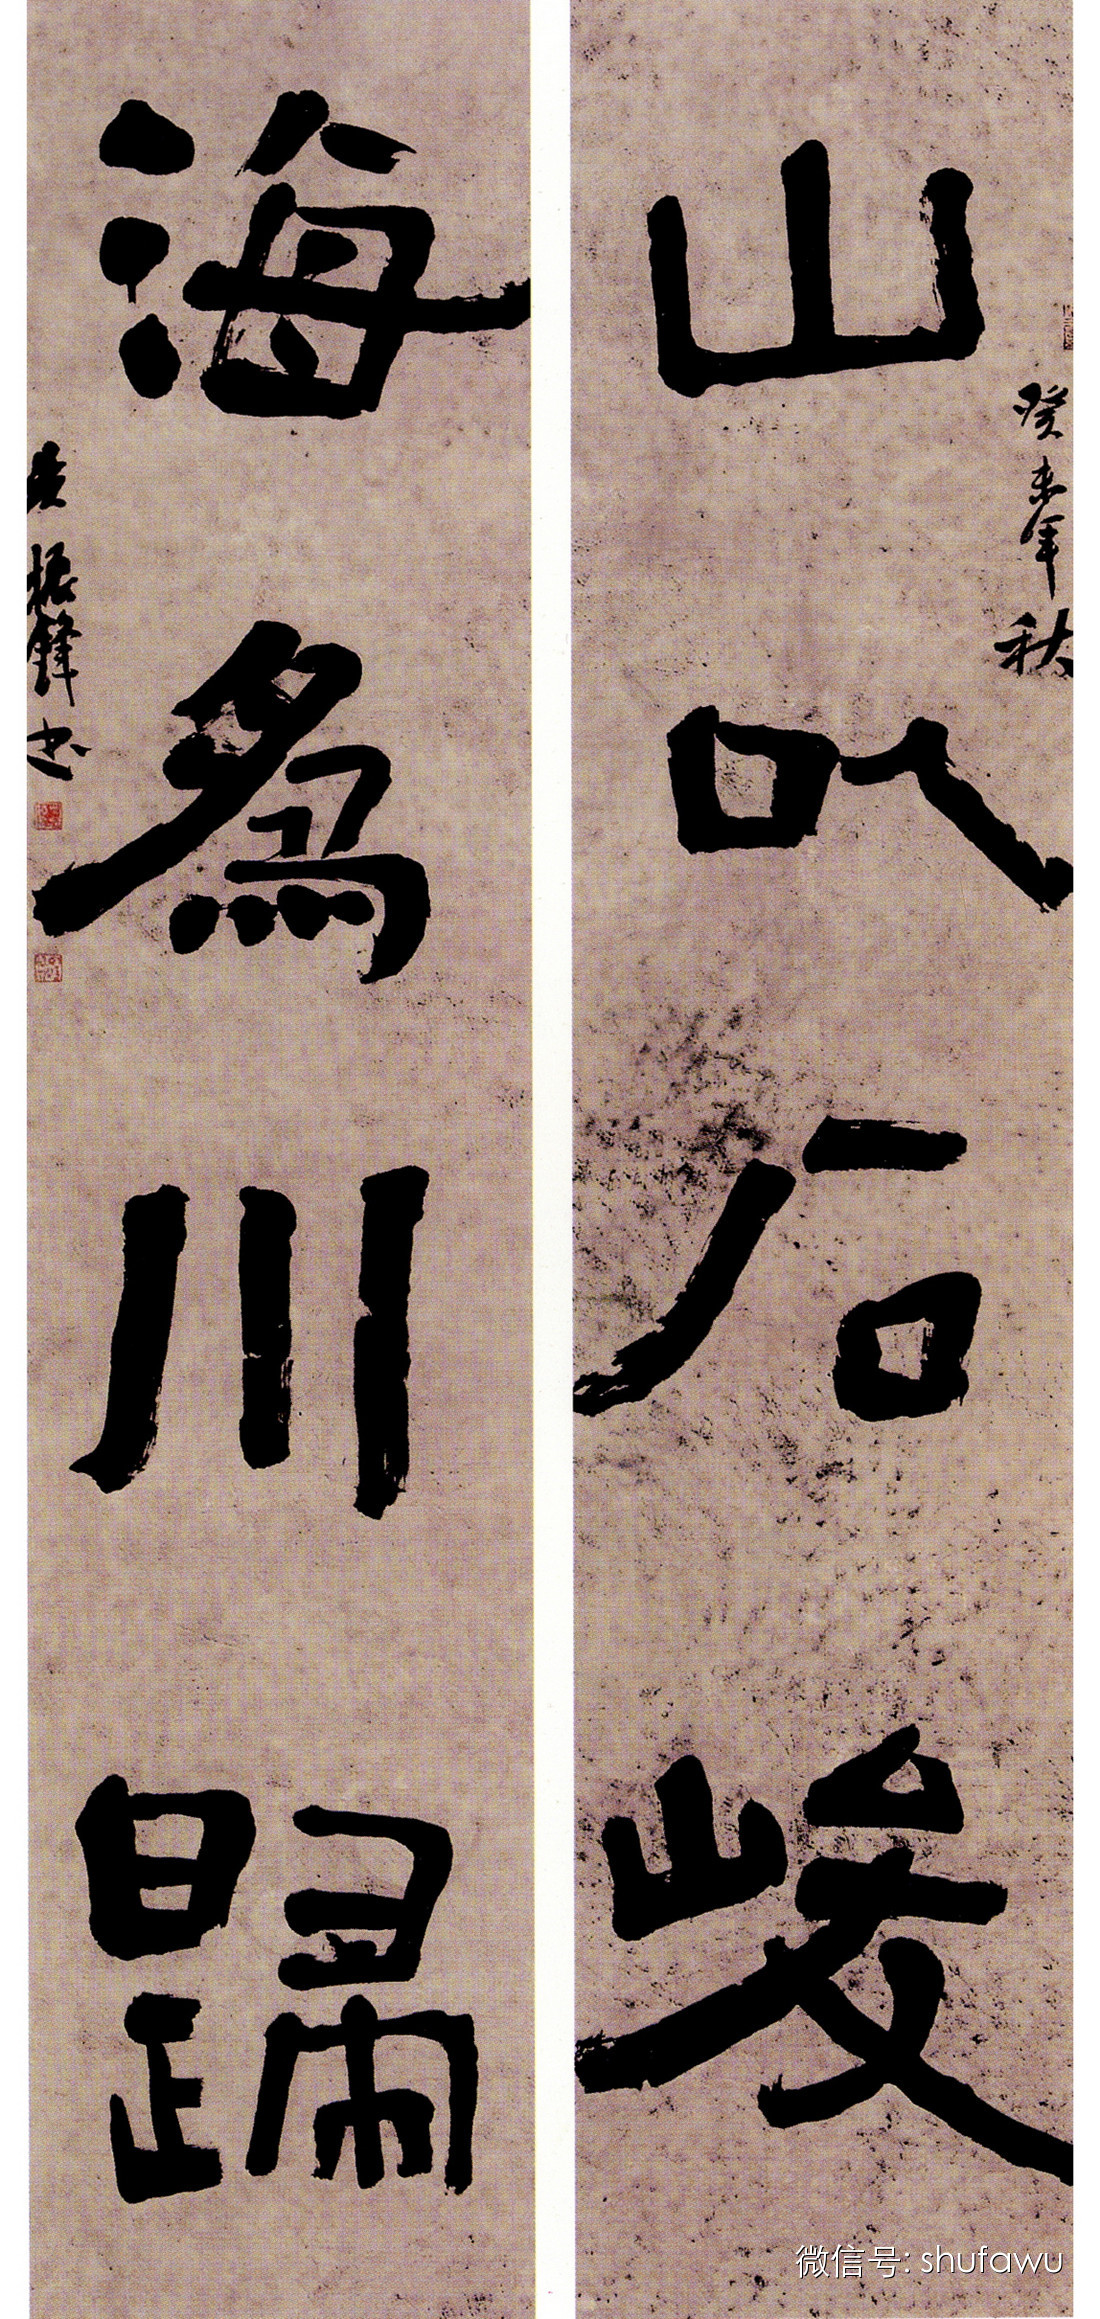 癸未年秋
山以石峻
海為川歸
吴振鋒书
微信号: shufawu